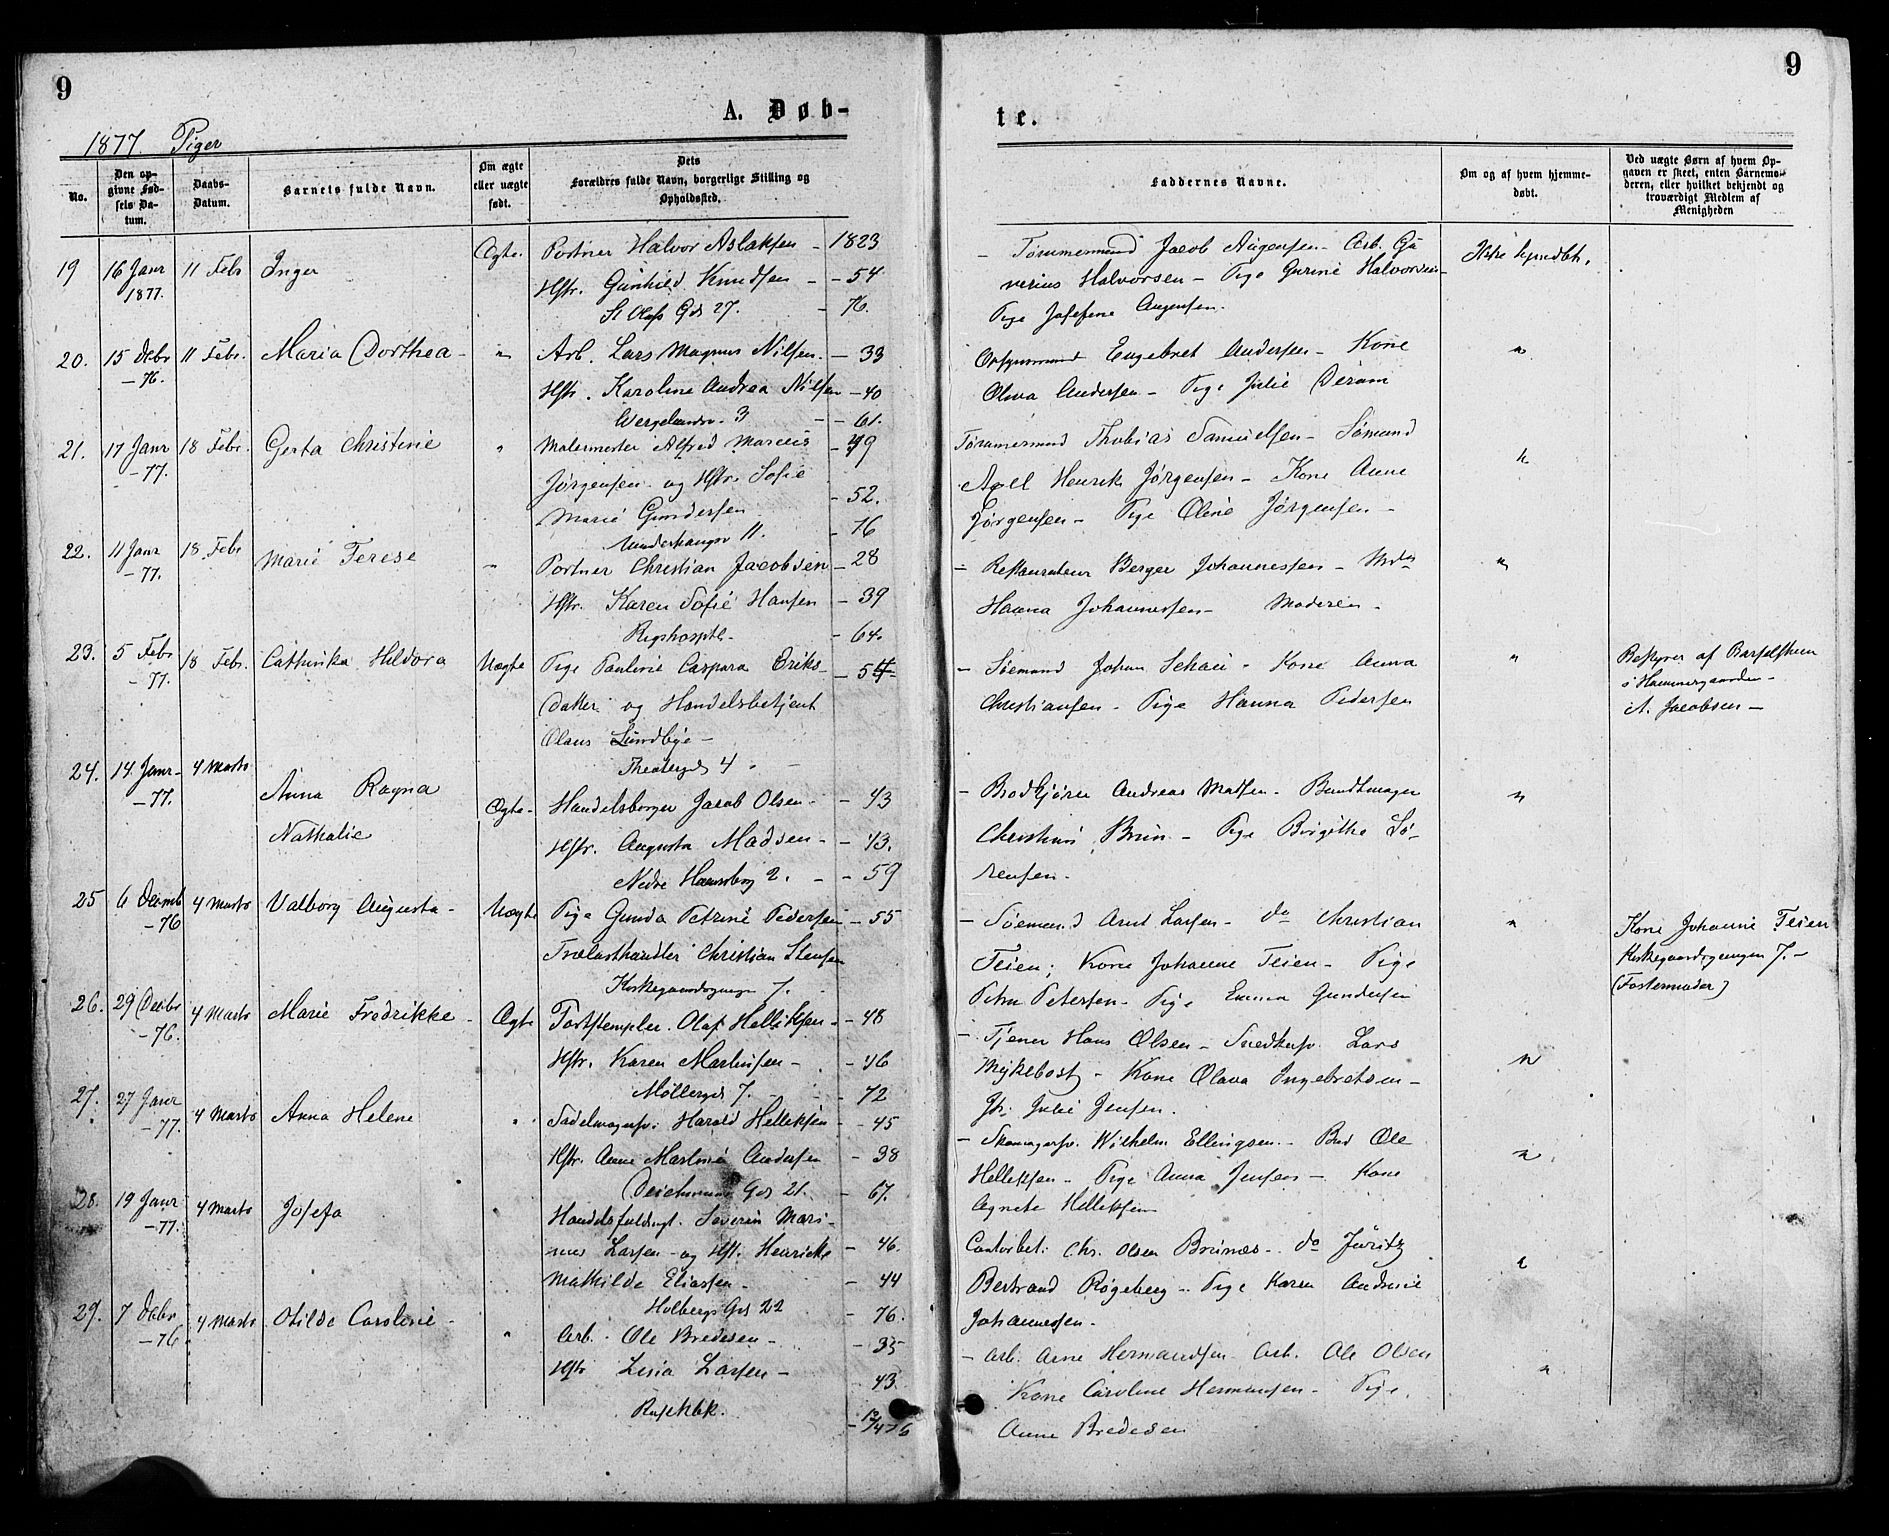 9
9
A. Døb-
te.
1877. Piger
No.
Den op-
givne Fød-
sels Da-
tum.
Daabs-
Datum.
Barnets fulde Navn.
Om ægte
eller uægte
født.
Dets
Forældres fulde Navn, borgerlige Stilling og
Opholdssted.
Faddernes Navne.
Om og af hvem hjemme-
døbt.
Ved uægte Børn af hvem Op-
gaven er skeet, enten Barnemo-
deren, eller hvilket bekjendt og
troværdigt Medlem af
Menigheden
19 16 Janr 11 Febr Inger Ægte. Portner Halvor Aslaksen - 1823
1877.
Hstr. Gunhild Knudsen - 54
St Olafs Gd 27. - 76.
- Tømmermand Jacob Augensen - Arb. Gu
verius Halvorsen - Pige Gurine Halvorsen
Pige Josefine Augensen.
Ikke hjmdbt.
20. 15 Debr 11 Febr. Maria Dorthea - " Arb. Lars Magnus Nilsen. - 33
- 76.
Hstr. Karoline Andrea Nilsen - 40
Wergelandsv. 3 - 61.
Engebret Andersen - Kone
Oliva Andersen - Pige Julie
"
21. 17 Janr 18 Febr. Gerta Christine " Malermester Alfred Marcus - 49
- 77.
Jørgensen og Hstr. Sofie
- 52.
Marie Gundersen
11. - 76
Tømmermand Thobias Samuelsen - Sømand
Axel Henrik Jørgensen - Kone Anne
Jørgensen - Pige Oline Jørgensen -
"
22. 11 Janr 18 Febr Marie Terese " Portner Christian Jacobsen - 28
- 77.
Hstr. Karen Sofie Hansen - 39
Rigshosptl. - 64.
- Restaurateur Berger Johannessen -
Hanna Johannessen - Moderen -
"
23. 5 Febr 18 Febr. Cathinka Hildora Uægte Pige Pauline Caspara Eriks- - 54
- 77.
Datter og Handelsbetjent
Olaus Lundbye -
Theatergd 4
- Sømand Johan Schau - Kone Anna
Christiansen - Pige Hanna Pedersen
"
Bestyrer af Barselstuen
i Hammergaarden -
A. Jacobsen -
24. 14 Janr - 4 Marts Anna Ragna Ægte - Handelsborger Jacob Olsen - - 43
- 77.
Nathalie
Hstr. Augusta Madsen - - 43.
Nedre Hausbrg 2. - - 59
- Brødkjører Andreas Matsen - Bundtmager
Christian Brun - Pige Birgithe Sø-
rensen -
"
25 6 Decmb 4 Marts Valborg Augusta - Uægte Pige Gunda Petrine Pedersen - 55
- 76
Trælasthandler Christian Stensen
Kirkegaardsgangen 7.
- Sømand Arnt Larsen - do Christian
Teien; Kone Johanne Teien - Pige
Petra Petersen - Pige Emma Gundersen
"
Kone Johanne Teien
Kirkegaardsgangen 7. -
(Fostermoder)
26. 29 Decbr 4 Marts Marie Fredrikke - Ægte Olaf Helliksen - - 48
- 76.
Hstr. Karen Martinsen - - 46
Møllergd 7. - 72
- Tjener Hans Olsen - Snedkersv. Lars
Myklebost - Kone Olava Ingebretsen -
Julie Jensen.
"
27. 27 Janr 4 Marts Anna Helene " Sadelmagersv: Harald Helleksen - 45
- 77.
Hstr. Anne Martine Andersen - 38
Deichmans Gd 21. - 67.
- Skomagersv. Wilhelm Ellingsen - Bud Ole
Helleksen - Pige Anna Jensen - Kone
Agnete Helleksen
"
28. 19 Janr 4 Marts Josefa Handelsfuldmgt. Severin Mari-
- 77.
nus Larsen - og Hst. Henrikke - 46.
Mathilde Eliassen - - 44
Holbergs Gd 22 - 76.
Contorbet: Chr. Olsen Brunæs - do Juritz
Bertrand Røgeberg - Pige Karen Andrine
Johannessen -
"
29. 7 Debr 4 Marts Otilde Caroline - " Arb. Ole Bredesen - - 35
- 76
Hstr Lina Larsen - - 43.
12/4 76
- Arb. Arne Hermansen Arb. Ole Olsen
Kone Caroline Hermansen - Pige
Anne Bredesen
"